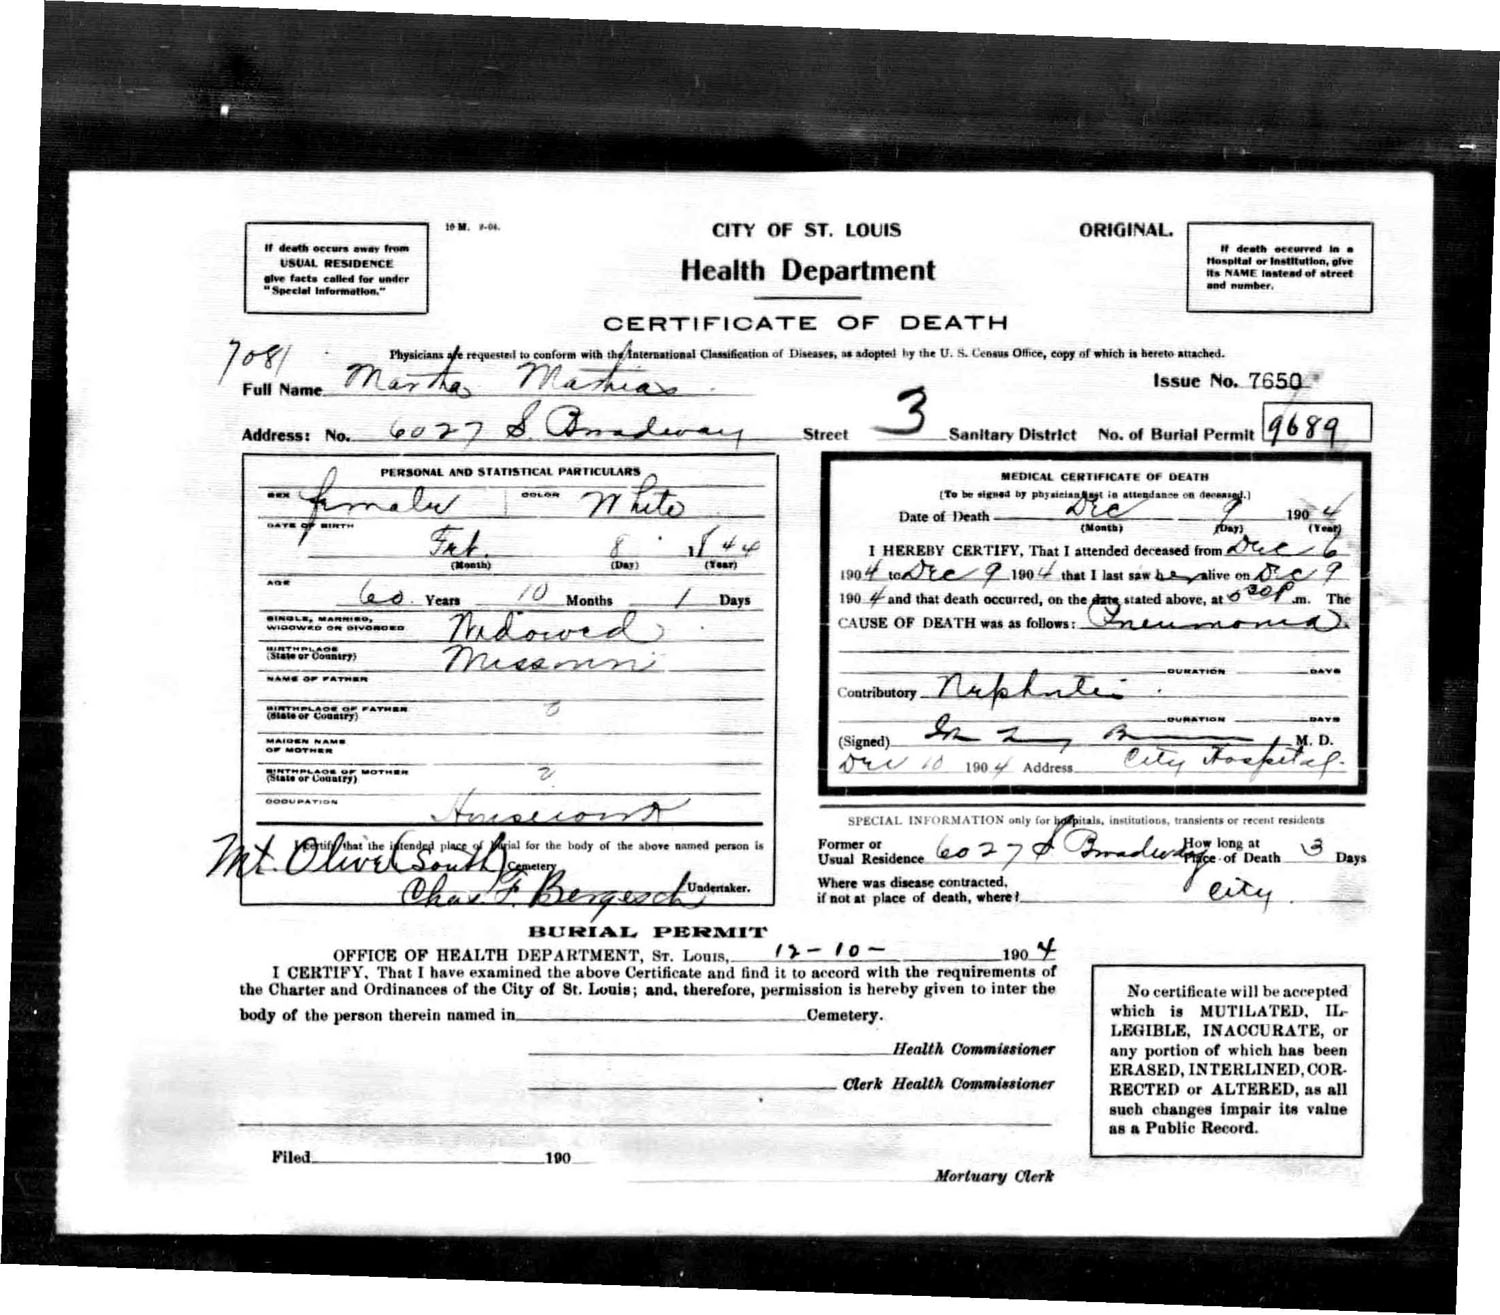 If death occurs away from
USUAL RESIDENCE
give facts called for under
"Special Information."
10 M. 9-04.
CITY OF ST. LOUIS
ORIGINAL.
Health Department
If death occurred in a
Hospital or Institution, give
its NAME instead of street
and number.
CERTIFICATE OF DEATH
7081
Physicians are requested to conform with the International Classification of Diseases, as adopted by the U. S. Census Office, copy of which is hereto attached.
Full Name Martha Mathias
Issue No. 7650
Address: No. 6027 S. Broadway Street 3 Sanitary District No. of Burial Permit 9689
PERSONAL AND STATISTICAL PARTICULARS
SEX female COLOR White
DATE OF BIRTH
Feb. 8 1844
(Month) (Day) (Year)
AGE
60 Years 10 Months 1 Days
SINGLE, MARRIED,
WIDOWED OR DIVORCED Widowed
BIRTHPLACE
(State or Country) Missouri
NAME OF FATHER
BIRTHPLACE OF FATHER
(State or Country)
MAIDEN NAME
OF MOTHER
BIRTHPLACE OF MOTHER
(State or Country)
OCCUPATION
Housework
I certify that the intended place of burial for the body of the above named person is
Mt. Olive (South) Cemetery
Chas F. Bergesch Undertaker.
MEDICAL CERTIFICATE OF DEATH
(To be signed by physician last in attendance on deceased.)
Date of Death Dec 9 1904
(Month) (Day) (Year)
I HEREBY CERTIFY, That I attended deceased from Dec 6
1904 to Dec 9 1904 that I last saw her alive on Dec 9
1904 and that death occurred, on the date stated above, at 530 P.m. The
CAUSE OF DEATH was as follows: Pneumonia
DURATION DAYS
Contributory Nephritis
DURATION DAYS
(Signed) M. D.
Dec 10 1904 Address City Hospital.
SPECIAL INFORMATION only for hospitals, institutions, transients or recent residents
Former or
Usual Residence 6027 S Broadway How long at
Place of Death 3 Days
Where was disease contracted,
if not at place of death, where? City
BURIAL PERMIT
OFFICE OF HEALTH DEPARTMENT, ST. LOUIS, 12-10- 1904
I CERTIFY, That I have examined the above Certificate and find it to accord with the requirements of
the Charter and Ordinances of the City of St. Louis; and, therefore, permission is hereby given to inter the
body of the person therein named in Cemetery.
Health Commissioner
Clerk Health Commissioner
Filed 190
Mortuary Clerk
No certificate will be accepted
which is MUTILATED, IL-
LEGIBLE, INACCURATE, or
any portion of which has been
ERASED, INTERLINED, COR-
RECTED or ALTERED, as all
such changes impair its value
as a Public Record.